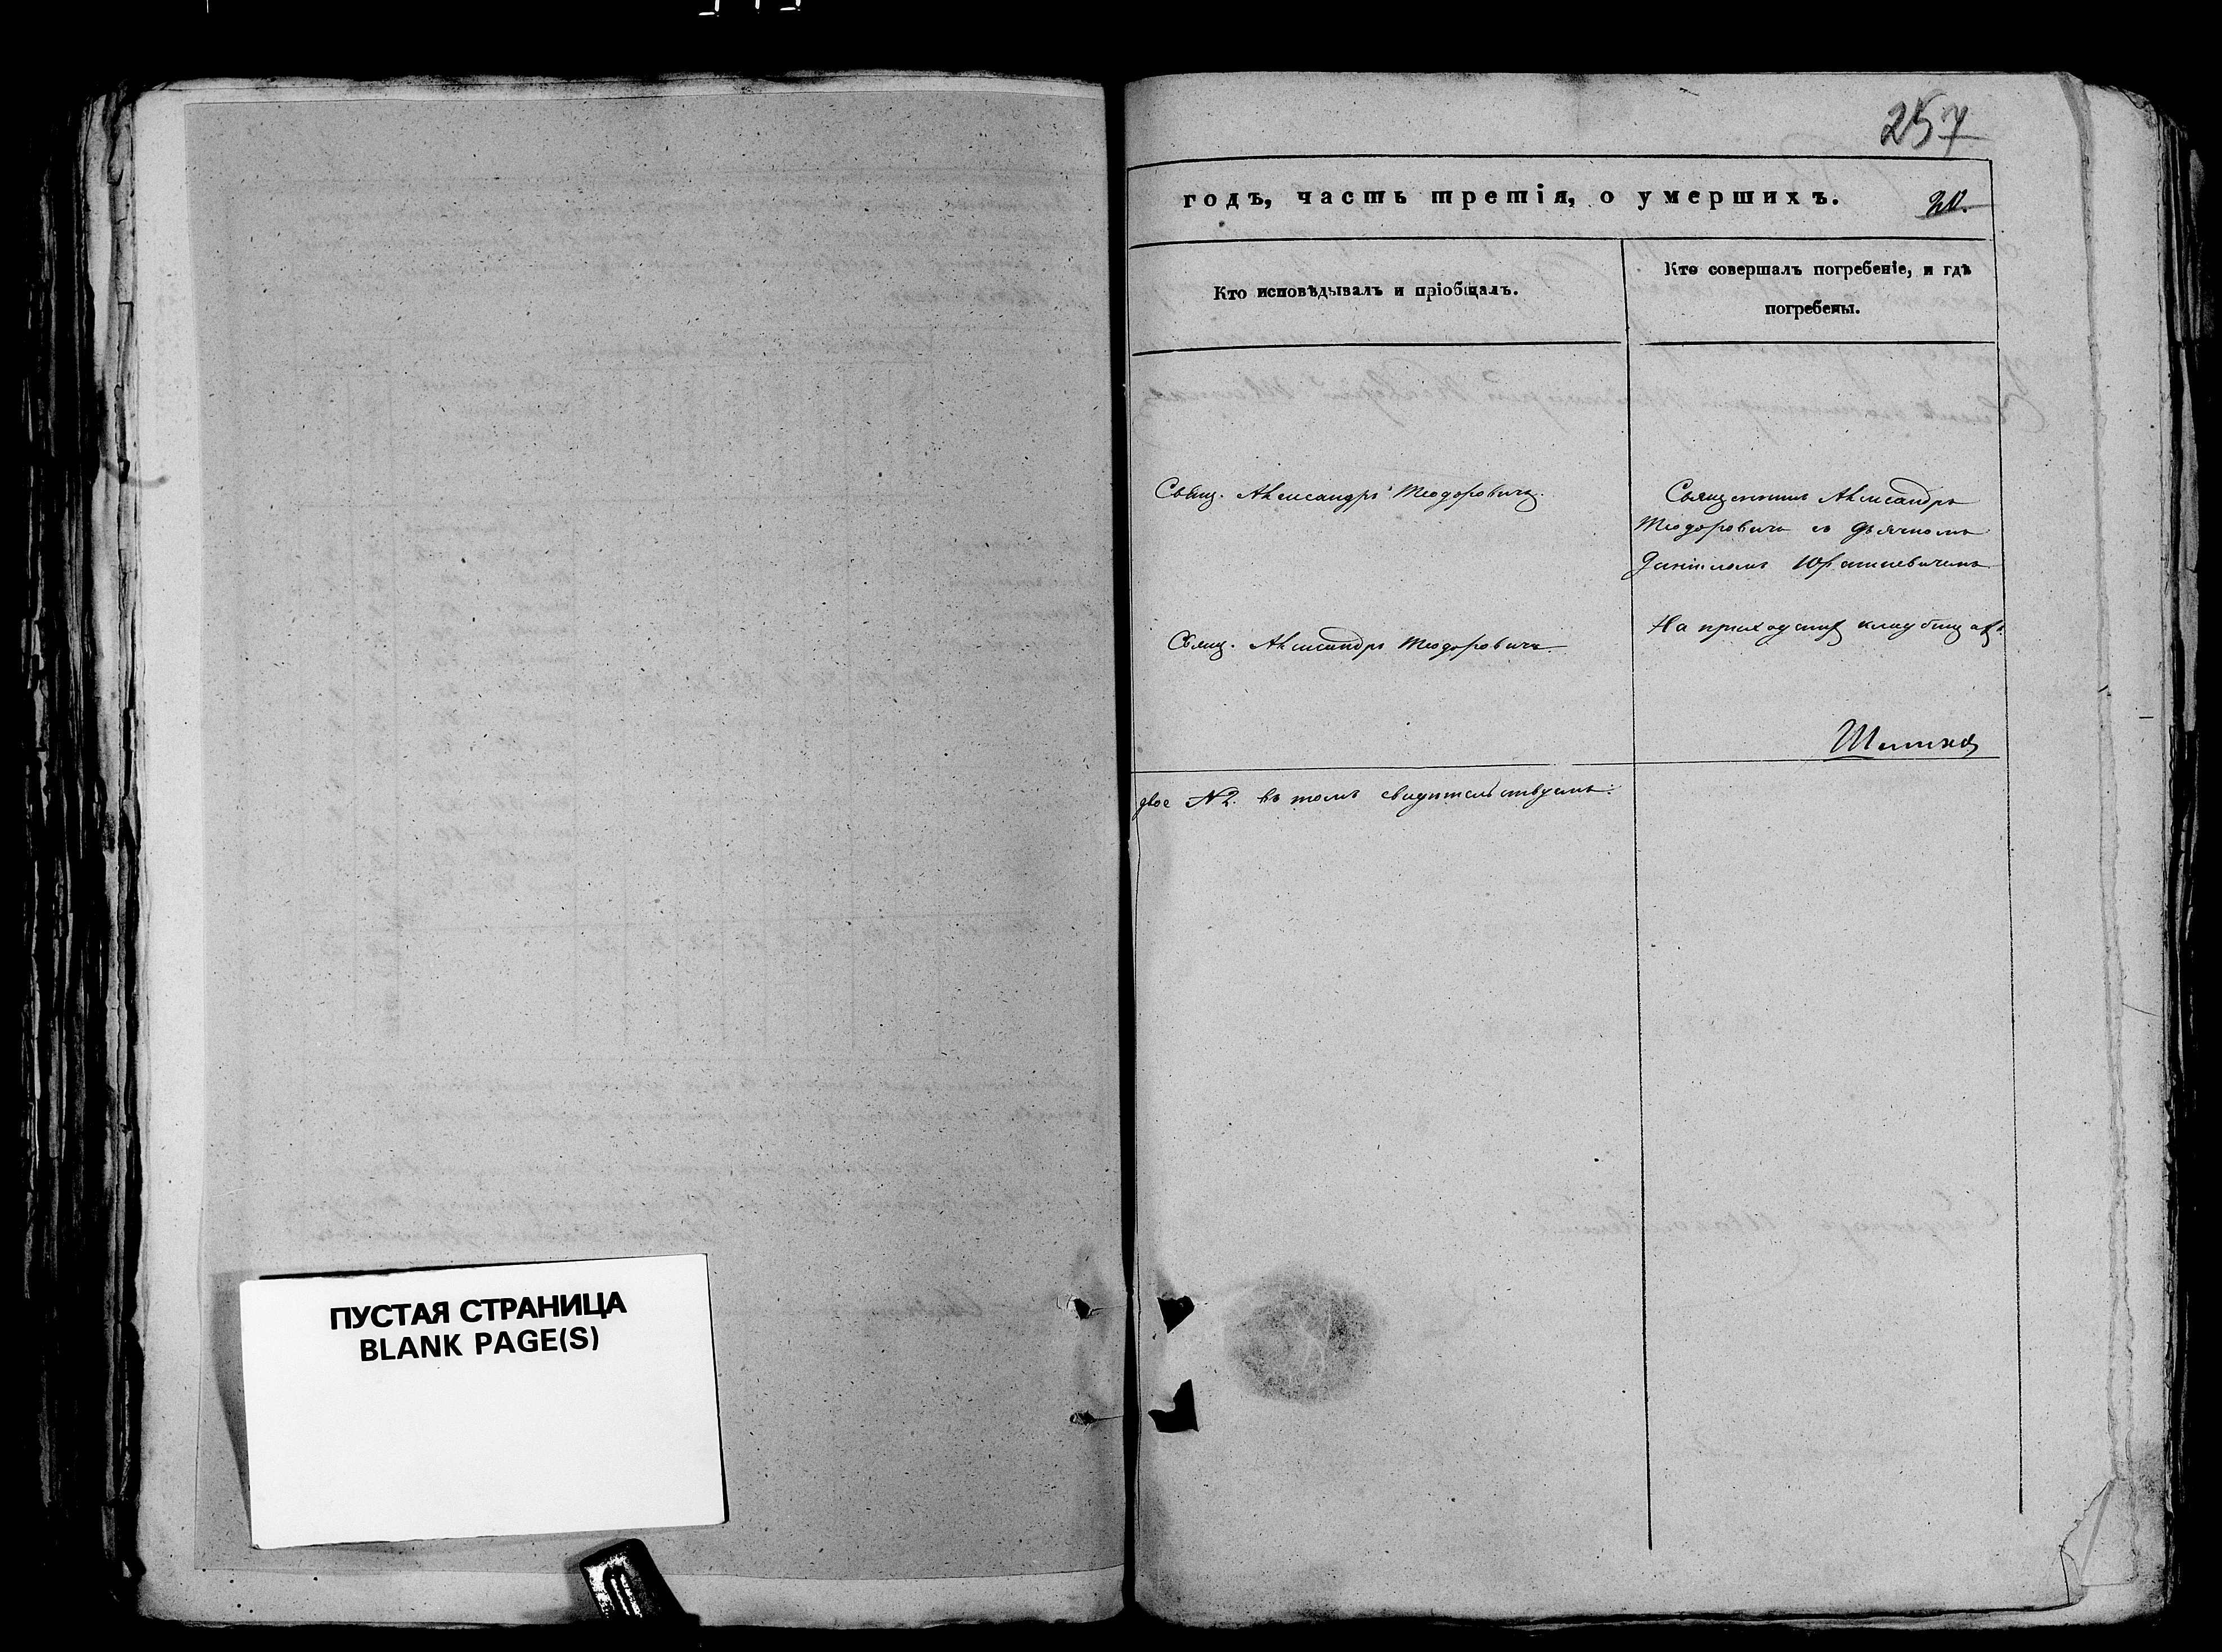 257
годъ, часть третія, о умершихъ.
20.
Кто исповѣдывалъ и пріобщалъ.
Кто совершалъ погребеніе, и гдѣ
погребены.
Свящ. Александръ Теодоровичъ.
Священникъ Александръ
Теодоровичъ съ дьячкомъ
Даніиломъ
На приходском кладбищѣ
Свящ. Александръ Теодоровичъ
двое №2. въ томъ свидѣтельствуемъ:
ПУСТАЯ СТРАНИЦА
BLANK PAGE(S)